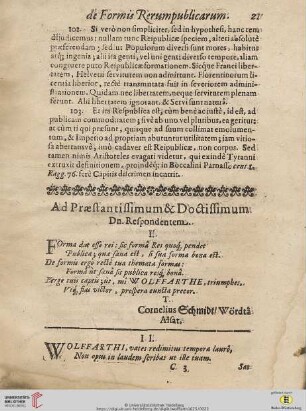 de Formis Rerumpublicarum. 21
102. Si verò non simpliciter, sed in hypothesi, hanc rem
dijudicemus: nullam tunc Reipublicæ speciem, alteri absolutè
præferendam; sed ut Populorum diversi sunt mores, habitus
atq; ingenia; alii ita geni, vel uni genti diverso tempore, aliam
congruere puto Reipublicæ formationem. Sicq; ut Franci libertatem,
Helveti servitutem non admittunt. Florentinorum licentia
liberior, rectè transmutata fuit in severiorem administrationem.
Quidam nec libertatem, neque servitutem plenam
ferunt. Alii libertatem ignorant, & Servi sunt naturâ.
103. Et in Republica est; cùm benè ac justè, id est, ad
publicam commoditatem; sivè ab uno vel pluribus, ea geritur:
at cum ii qui præsunt, quisque ad suum collimat emolumentum,
& Imperio ad propriam abutuntur utilitatem; jam vitiosa
aberransvè, imò cadaver est Reipublicæ, non corpus. Sed
tamen nimis Aristoteles exagui videtur, qui exindè Tyranni
extruit definitionem, proindeq; in Boccalini Parnasso, cent. 1.
Ragg. 76. ferè Capitis discrimen incurrit.
Ad Præstantissimum & Doctissimum
Dn. Respondentem.
I.
FOrma dat esse rei: sic formâ Res quoq; pendet
Publica, quæ sana est, si sua forma bona est.
De formis ergò rectè tua themata formas:
Forma ut sana sic publica reid, bona.
Perge tuis captis sic, mi WOLFFARTHE, triumphes.
Vtq; sias victor, prospera cuncta precor.
T.
Cornelius Schmidt/ Wördtâ
Alsat.
II.
WOLFFARTHI, vates redimitus tempora laurô,
Non opus in laudem scribat ut iste tuam.
C 3. Sat